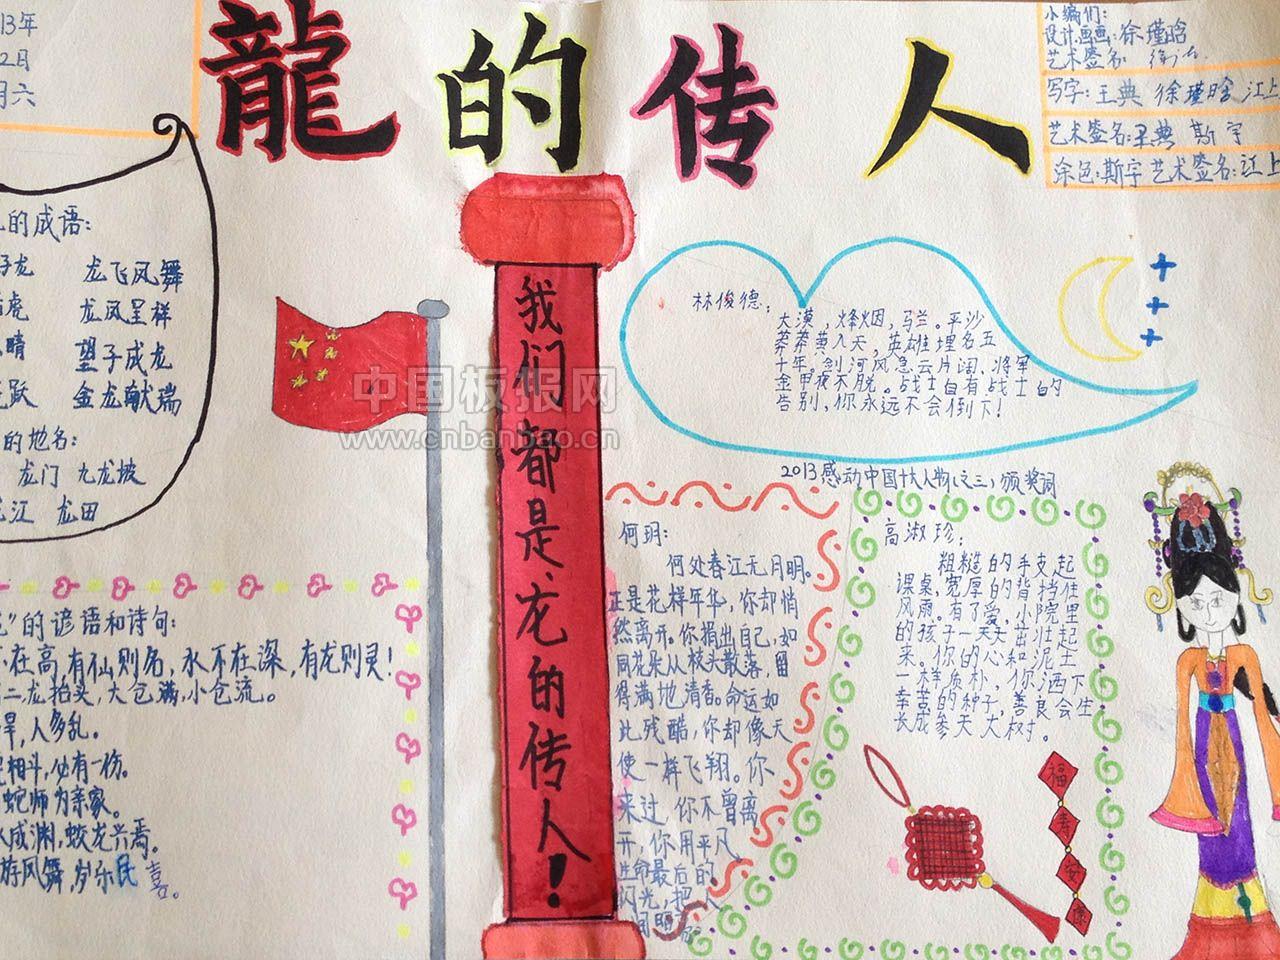 13年
2日
六
龍的传人
小编们:
设计画画:徐瑾晗
艺术签名
写字:王典 徐瑾晗 江上
艺术签名:王典 斯宇
涂色:斯宇 艺术签名:江上
的成语:
子龙 龙飞凤舞
虎 龙凤呈祥
睛 望子成龙
跃 金龙献瑞
的地名:
龙门 九龙坡
江 龙田
”的谚语和诗句:
不在高,有仙则名,水不在深,有龙则灵!
二,龙抬头,大仓满,小仓流。
旱,人多乱。
相斗,必有一伤。
蛇师为亲家。
成渊,蛟龙兴焉。
游凤舞,岁乐民喜。
我们都是龙的传人!
中国板报网
www.cnbanbao.cn
林俊德:
大漠,烽烟,马兰。平沙
莽莽黄入天,英雄埋名五
十年。剑河风急云片阔,将军
金甲夜不脱。战士自有战士的
告别,你永远不会倒下!
2013感动中国十大人物(之三)颁奖词
何玥:
何处春江无月明。
正是花样年华,你却悄
然离开。你捐出自己,如
同花朵从枝头散落,留
得满地清香。命运如
此残酷,你却像天
使一样飞翔。你
来过 你不曾离
开,你用平凡
生命最后的
闪光,把人
高淑珍:
粗糙的手支起
课桌,宽厚的背挡住
风雨。有了爱,小院里
的孩子一天天茁壮起
来。你的心和泥土
一样质朴,你洒下
幸苦的种子,善良会生
长成参天大树。
福
寿
安
康